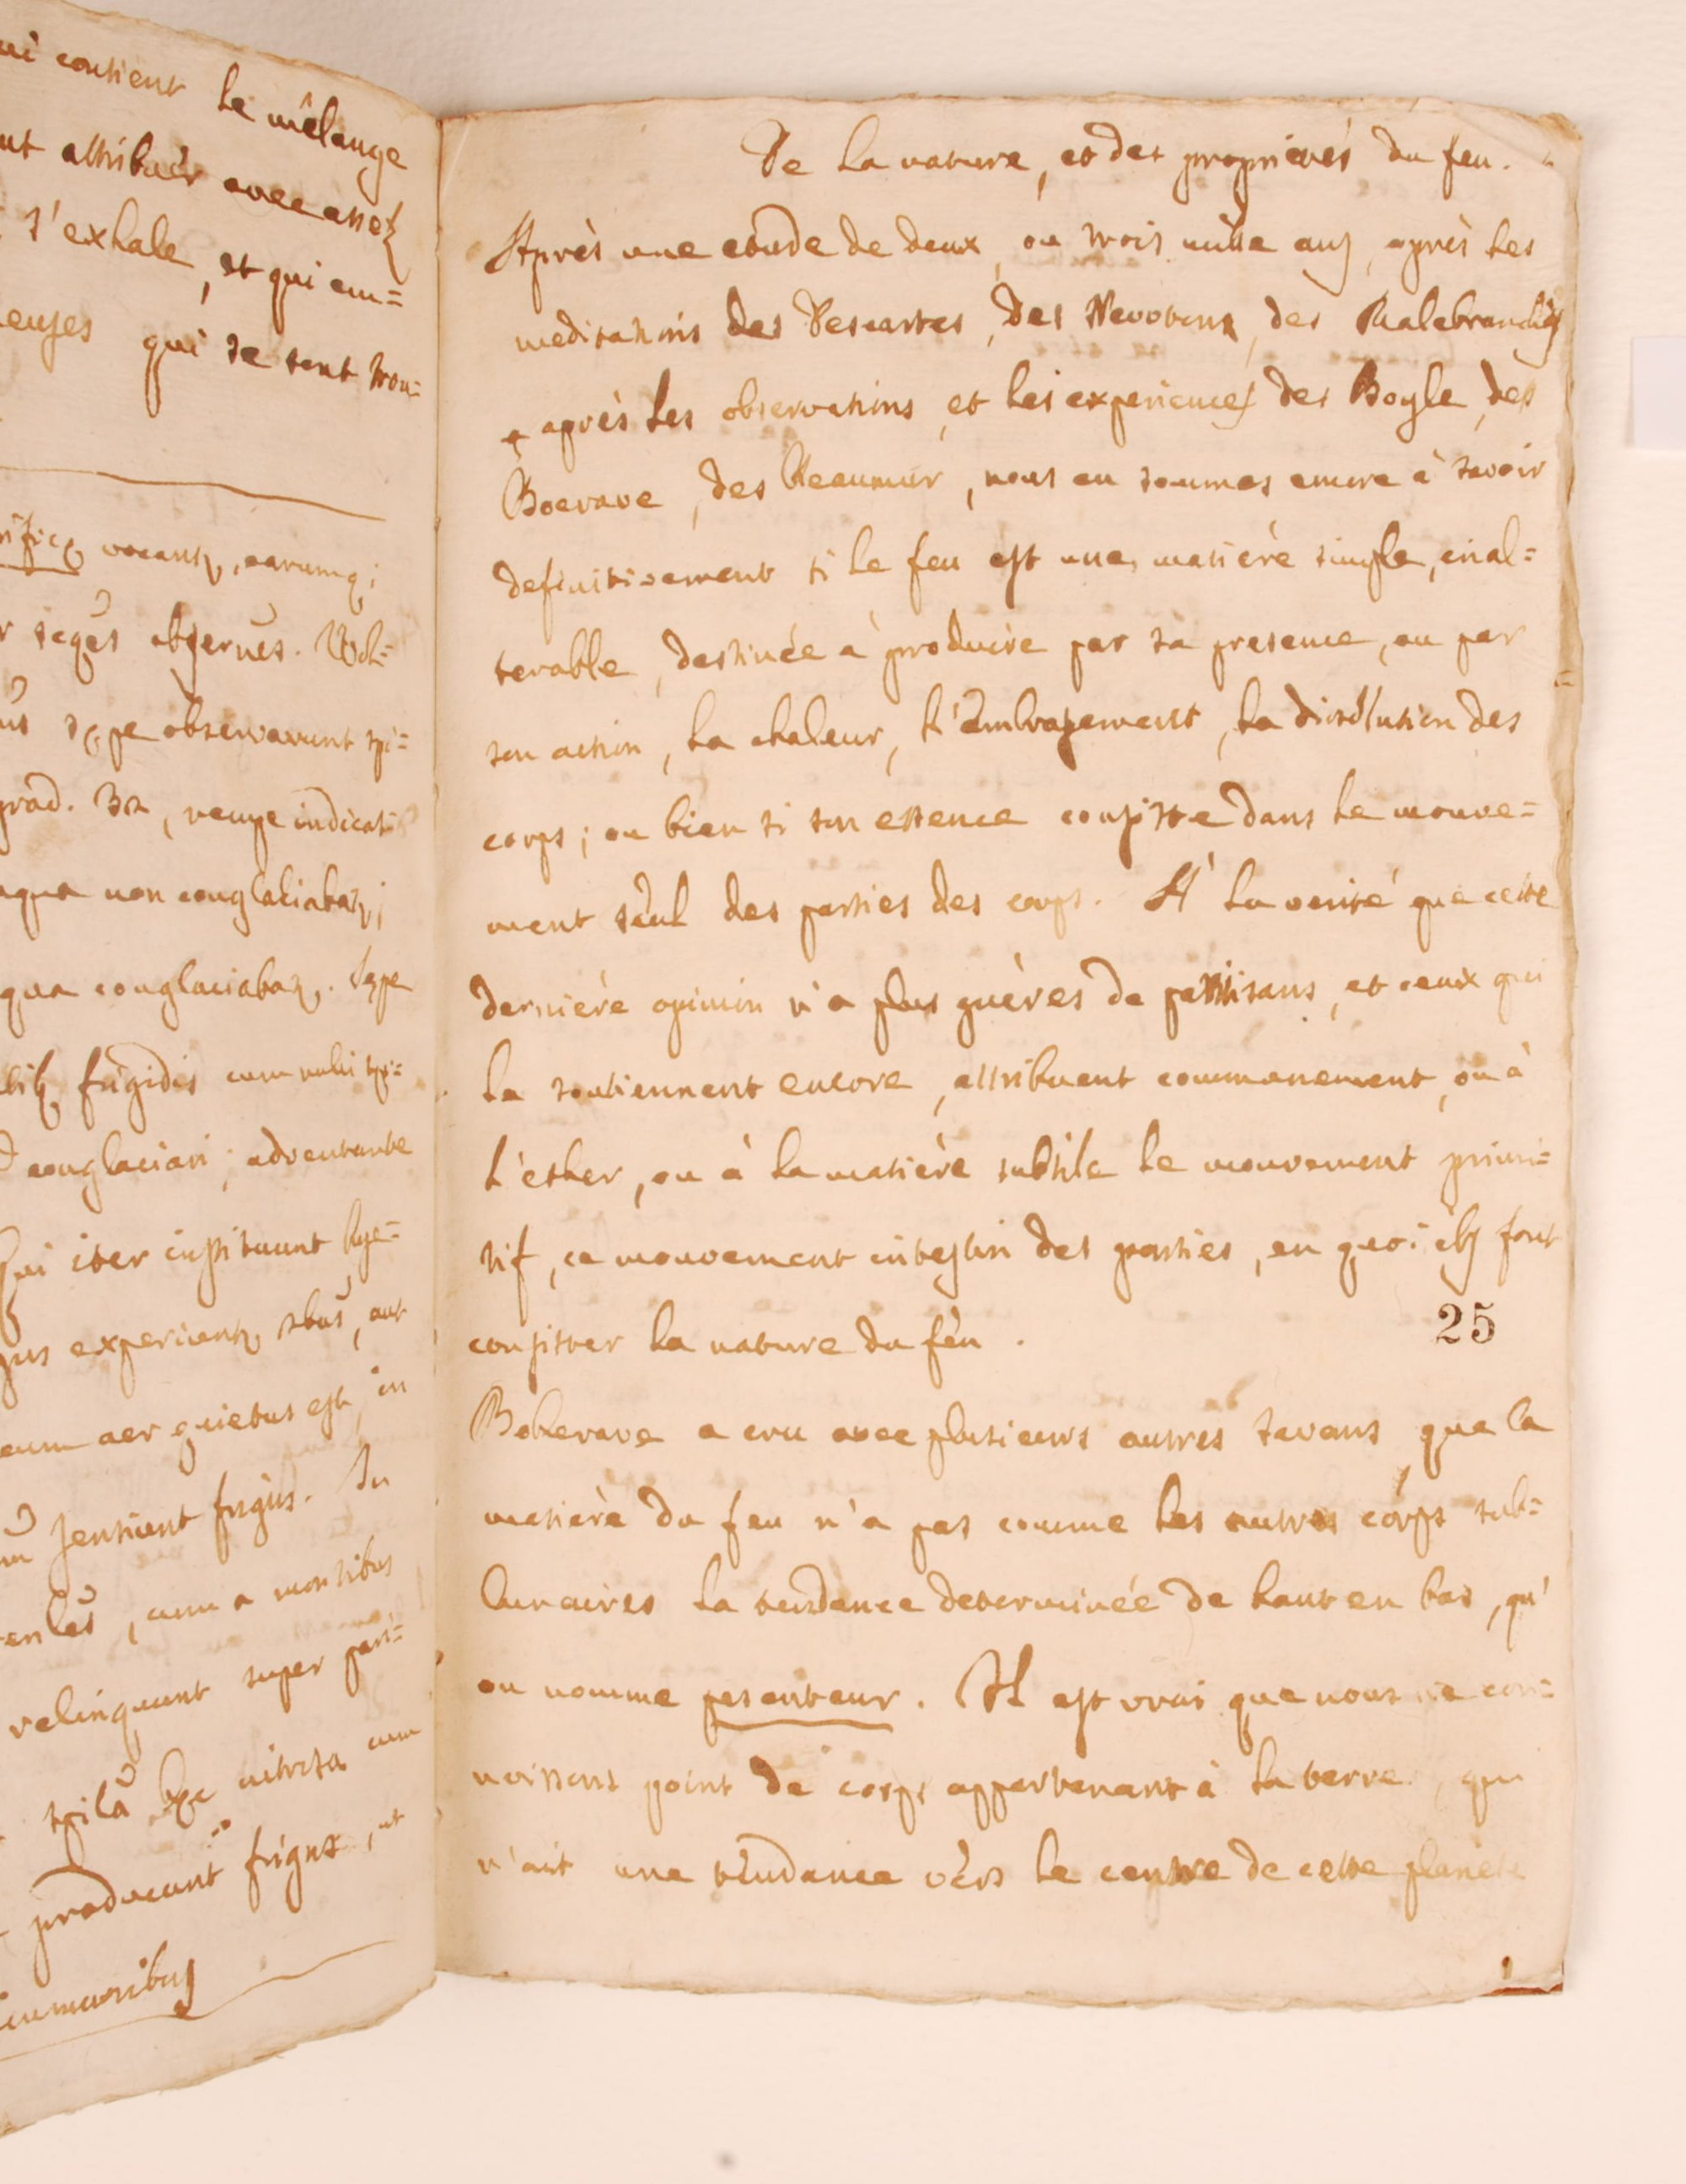 ui contient le mêlange
nt attribuer avec assez
s'exhale, et qui em=
enses qui se sont trou=
vocant, earumq;
r seqēs obserues. Vol=
sępe observarunt spi=
grad. 32, neuye indicat
aqua non conglaciabat;
qua conglaciabat. Sępe
frigidis cum nulli spi=
conglaciari; adventante
Qui iter instituunt hye=
experient, aut
cum aer quietus est, in
sentiunt frigus. In
, cum a montibus
relinquunt super pari=
spila hęc nitrosa cum
producunt frigus, ut
De la nature, et des proprietés du feu.
Après une etude de deux, ou trois mille ans, après les
meditations des Descartes, des Nevvtons, des Malebranches
après les observations, et les experiences des Boyle, des
Boerave, des Reaumur, nous en sommes encore à savoir
definitivement si le feu est une matière simple, inal=
terable, destinée à produire par sa presence, ou par
son action, la chaleur, l'embrasement, la dissolution des
corps; ou bien si son essence consiste dans le mouve=
ment seul des parties des corps. A' la verité que cette
dernière opinion n'a plus guères de partisans, et ceux qui
la soutiennent encore, attribuent communement, ou à
l'ether, ou à la matière subtile le mouvement primi=
tif, ce mouvement intestin des parties, en quoi ils font
consister la nature du feu.
25
Boherave a cru avec plusieurs autres savans, que la
matière du feu n'a pas comme les autres corps sub=
lunaires la tendance determinée de haut en bas, qu'
on nomme pesanteur. Il est vrai que nous ne con=
noissons point de corps appartenant à la terre, qui
n'ait une tendance vèrs le centre de cette planète